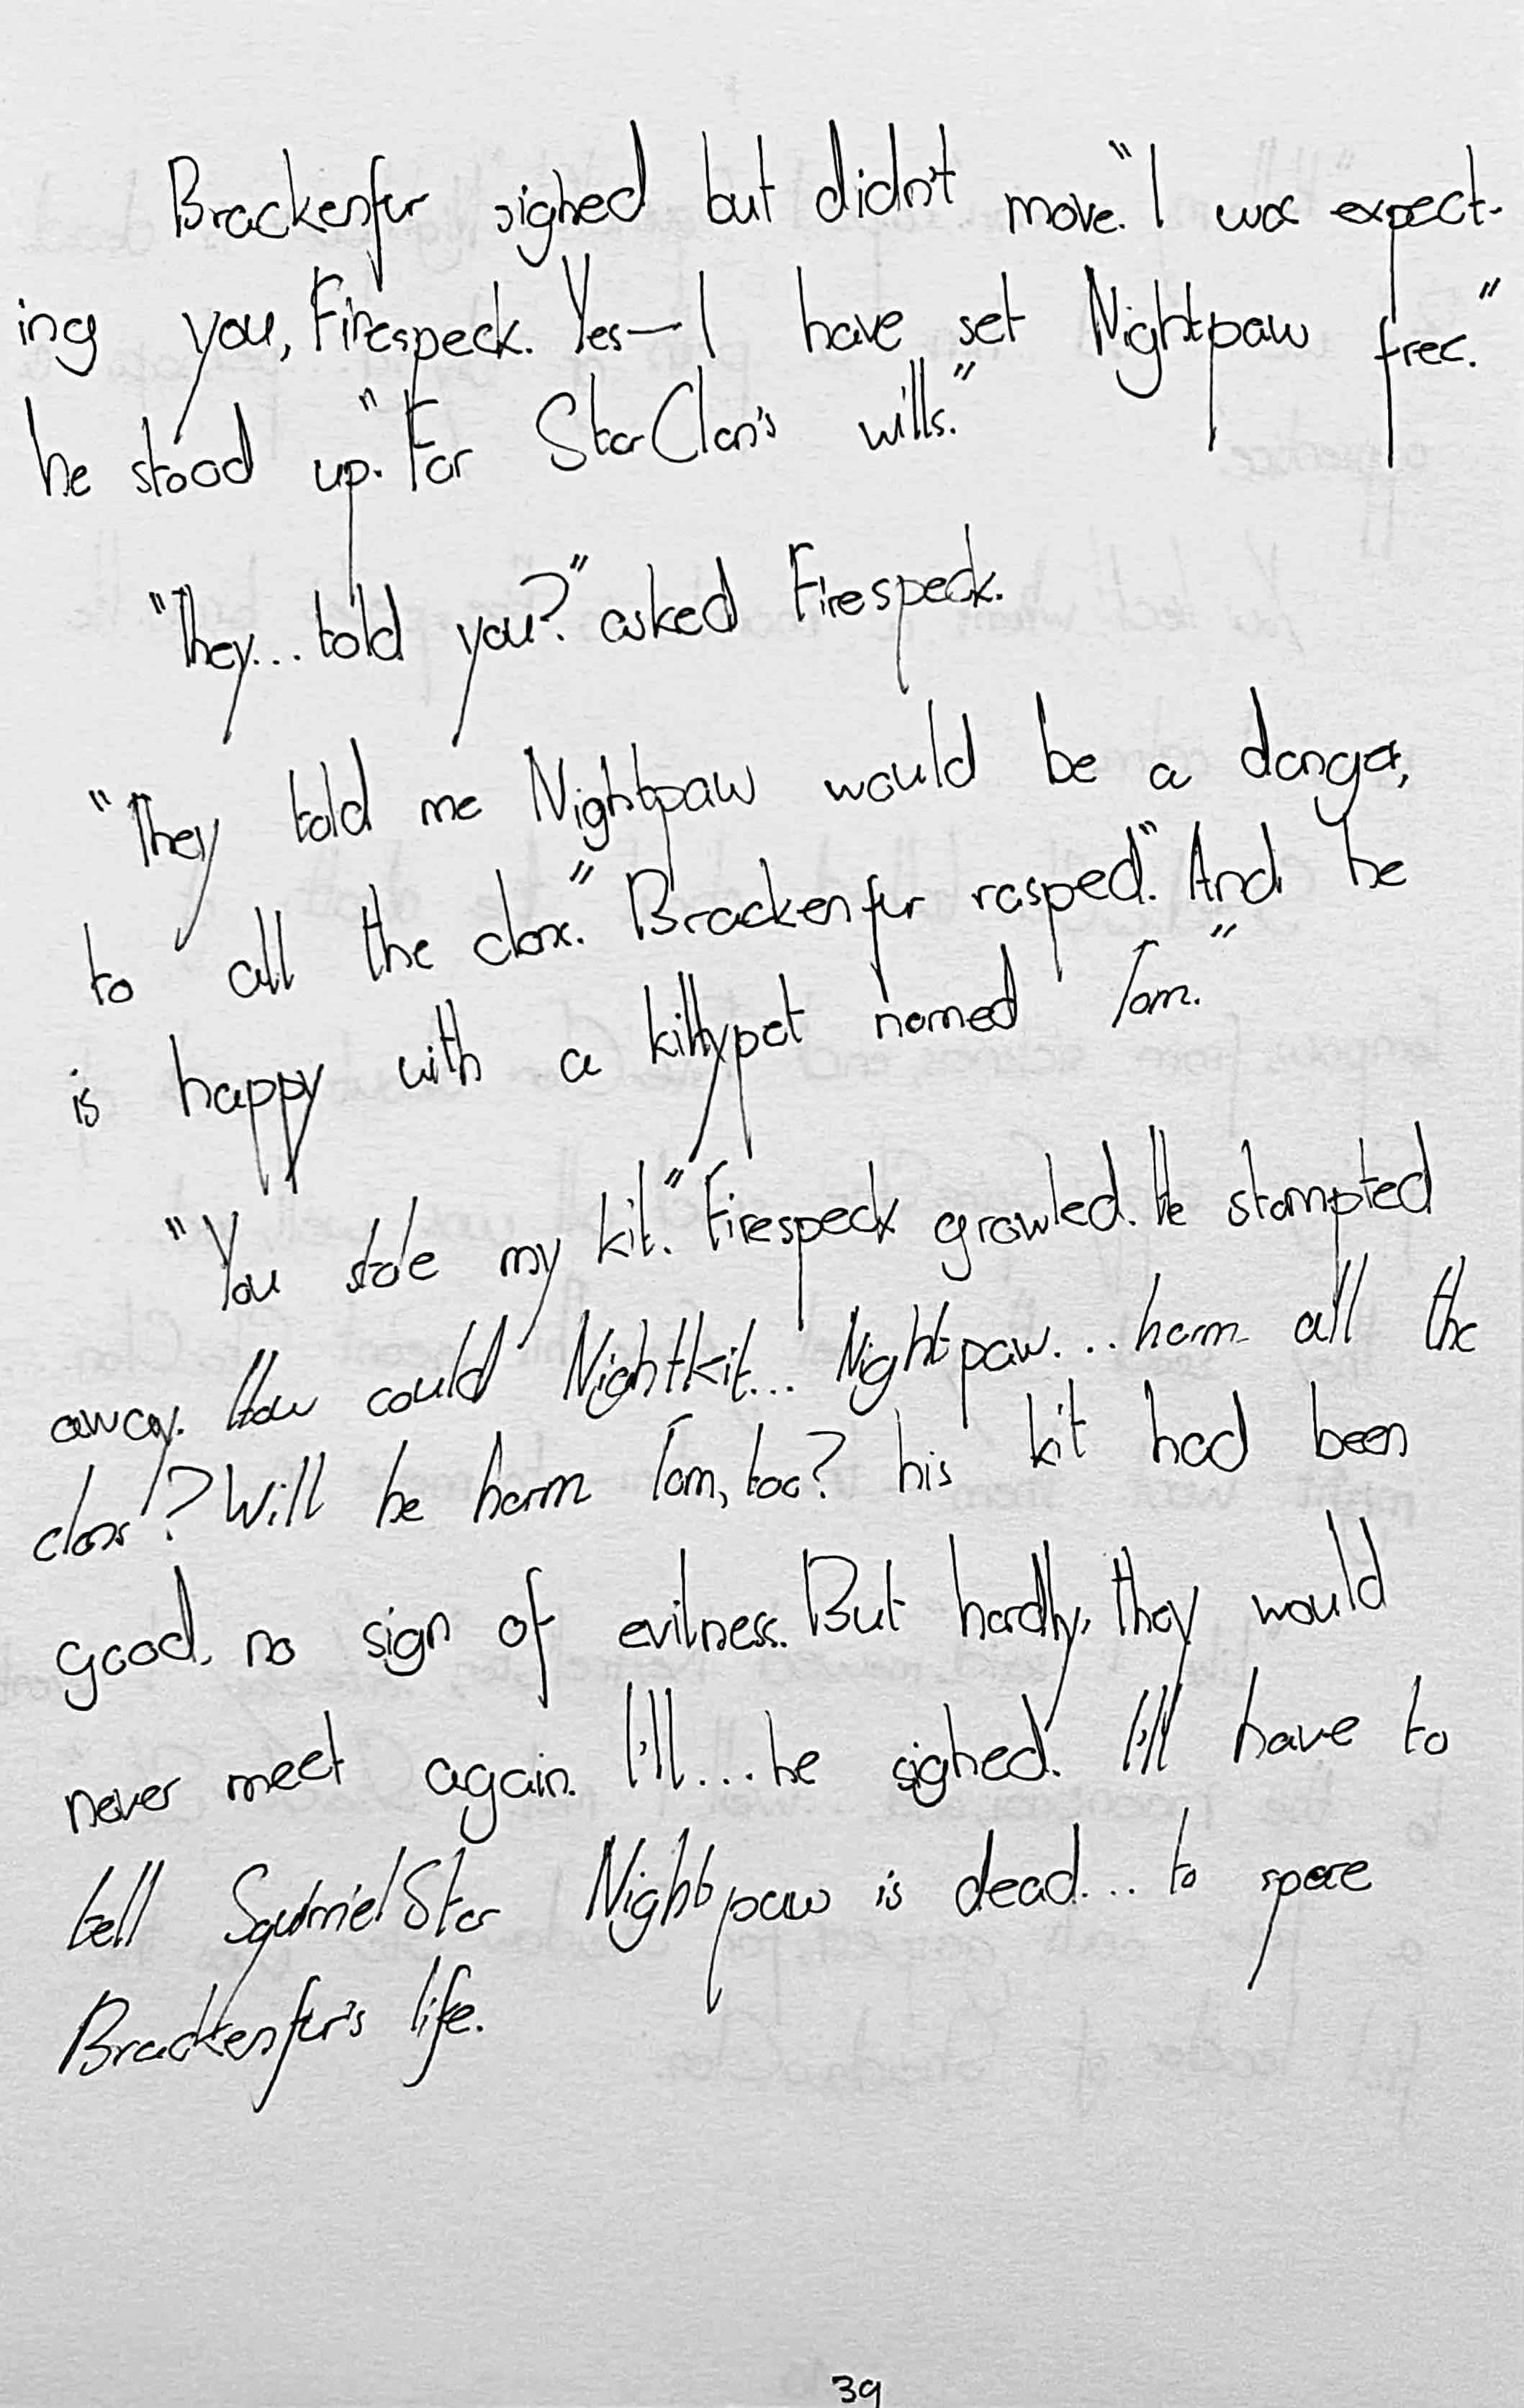 Brackenfur sighed but didn't move. "I was expect-
ing you, Firespeck. Yes—I have set Nightpaw free."
he stood up. "For StarClan's wills."
"They... told you?" asked Firespeck.
"They told me Nightpaw would be a danger,
to all the clans." Brackenfur rasped. "And he
is happy with a kittypet named Tom."
"You stole my kit." Firespeck growled. He stompted
away. How could Nightkit... Nightpaw... harm all the
clans? Will he harm Tom, too? his kit had been
good, no sign of evilness. But hardly, they would
never meet again. I'll... he sighed. I'll have to
tell SquirrelStar Nightpaw is dead... to spare
Brackenfur's life.
39